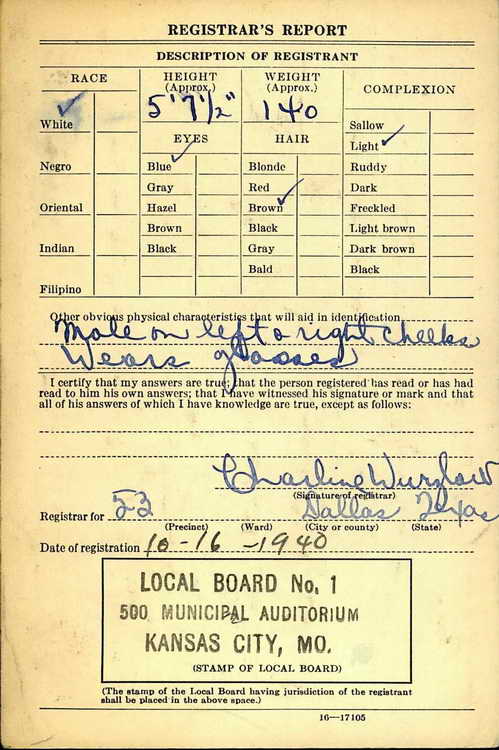 REGISTRAR'S REPORT
DESCRIPTION OF REGISTRANT
RACE
HEIGHT (Approx.)
WEIGHT (Approx.)
COMPLEXION
5' 7 1/2"
140
White ✓
EYES
HAIR
Sallow
Light ✓
Negro
Blue ✓
Blonde
Ruddy
Gray
Red
Dark
Oriental
Hazel
Brown ✓
Freckled
Brown
Black
Light brown
Indian
Black
Gray
Dark brown
Bald
Black
Filipino
Other obvious physical characteristics that will aid in identification
Mole on left & right cheeks
Wears glasses
I certify that my answers are true; that the person registered has read or has had
read to him his own answers; that I have witnessed his signature or mark and that
all of his answers of which I have knowledge are true, except as follows:
Charline Wurzlow
(Signature of registrar)
Registrar for 53 Dallas Texas
(Precinct) (Ward) (City or county) (State)
Date of registration 10-16-1940
LOCAL BOARD No. 1
500 MUNICIPAL AUDITORIUM
KANSAS CITY, MO.
(STAMP OF LOCAL BOARD)
(The stamp of the Local Board having jurisdiction of the registrant
shall be placed in the above space.)
16—17105